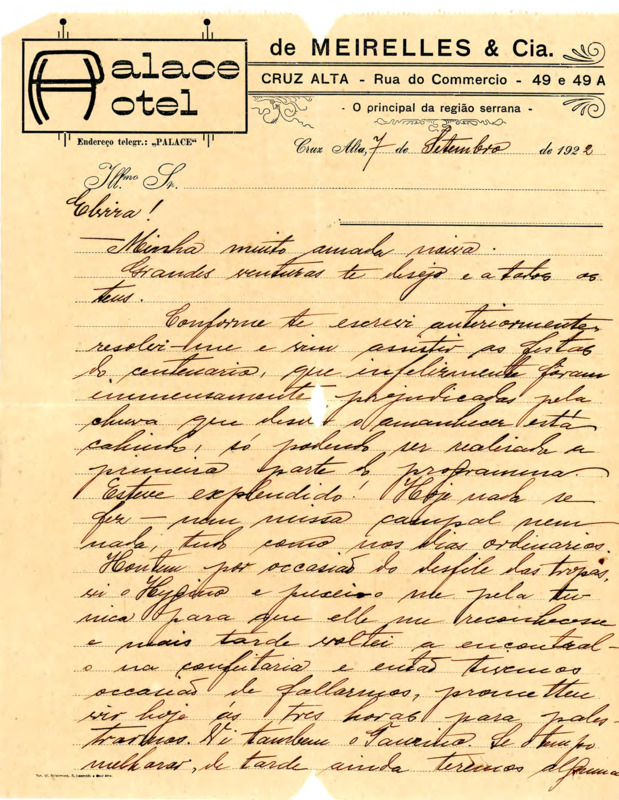 Palace Hotel
de MEIRELLES & Cia.
CRUZ ALTA - Rua do Commercio - 49 e 49 A
- O principal da região serrana -
Endereço telegr.: „PALACE“
Cruz Alta, 7 de Setembro de 1922
Ill.mo Sr.
Elvira!
— Minha muito amada noiva.
Grandes venturas te desejo e a todos os
teus.
Conforme te escrevi anteriormente,
resolvi-me e vim assistir as festas
do centenario, que infelizmente fôram
immensamente prejudicadas pela
chuva que desde o amanhecer está
cahindo, só podendo ser realizada a
primeira parte do programma.
Esteve explendido. Hoje nada se
fez - nem missa campal nem
nada, tudo como nos dias ordinarios.
Hontem por occasião do desfile das tropas,
vi o Hygino e puxei-o me pela tu-
nica para que elle me reconhecesse
e mais tarde voltei a encontral-
o na confeitaria e então tivemos
occasião de fallarmos, prometteu
vir hoje ás tres horas para pales-
trarmos. Vi tambem o Se o tempo
melhorar, de tarde ainda teremos alguma